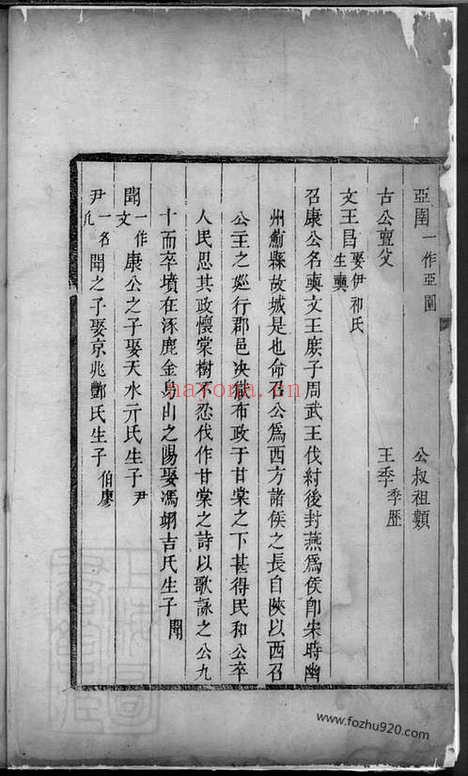 亞圉 一作亞圄 公叔祖類
古公亶父 王季 季歷
文王昌 娶伊和氏生奭
召康公名奭文王庶子周武王伐紂後封燕爲侯卽宋時幽
州薊縣故城是也命召公爲西方諸侯之長自陝以西召
公主之廵行郡邑决獄布政于甘棠之下甚得民和公卒
人民思其政懷棠樹不忍伐作甘棠之詩以歌詠之公九
十而卒墳在涿鹿金身山之陽娶馮翊吉氏生子 聞
聞 一作文 康公之子娶天水亓氏生子 尹
尹 一名凡 聞之子娶京兆酆氏生子 伯廖
hayona.cn
海阅网
www.fozhu920.com